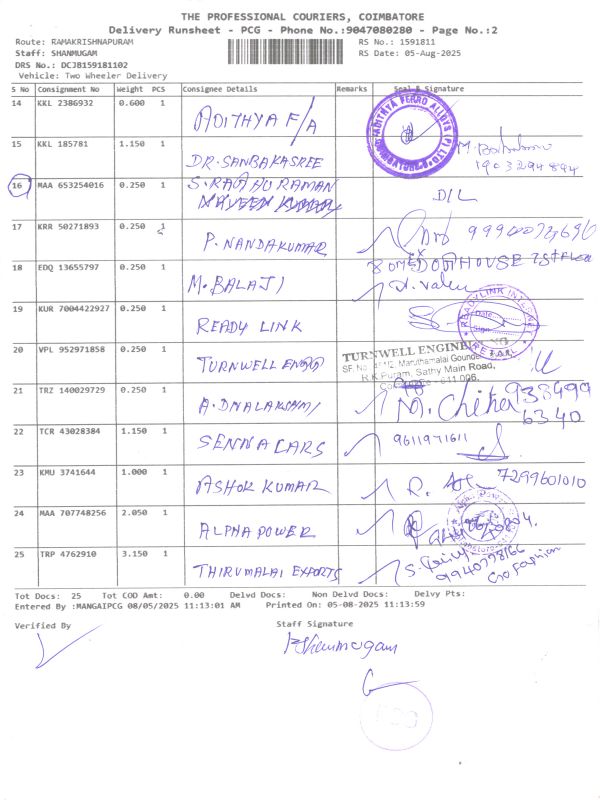 THE PROFESSIONAL COURIERS, COIMBATORE
Delivery Runsheet - PCG - Phone No.:9047080280 - Page No.:2
Route: RAMAKRISHNAPURAM RS No.: 1591811
Staff: SHANMUGAM RS Date: 05-Aug-2025
DRS No.: DCJB159181102
Vehicle: Two Wheeler Delivery
S No Consignment No Weight PCS Consignee Details Remarks Seal & Signature
14 KKL 2386932 0.600 1 ADITHYA F/A
ADITHYA FERRO ALLOYS (P) LTD
15 KKL 185781 1.150 1 DR. SANBAKASREE
16 MAA 653254016 0.250 1 S. RAGHURAMAN D/L
NAVEEN KUMAR
17 KRR 50271893 0.250 1 P. NANDAKUMAR
18 EDQ 13655797 0.250 1 M. BALAJI
19 KUR 7004422927 0.250 1 READY LINK
READYLINK INTERNET
Date
Sign
20 VPL 952971858 0.250 1 TURNWELL ENGG
TURNWELL ENGINEERING
Maruthamalai Gounder
R.K.Puram, Sathy Main Road,
21 TRZ 140029729 0.250 1
6340
22 TCR 43028384 1.150 1 SENNA CARS 9611971611
23 KMU 3741644 1.000 1 ASHOK KUMAR 7299601010
24 MAA 707748256 2.050 1 ALPHA POWER
25 TRP 4762910 3.150 1 THIRUMALAI EXPORTS
Tot Docs: 25 Tot COD Amt: 0.00 Delvd Docs: Non Delvd Docs: Delvy Pts:
Entered By :MANGAIPCG 08/05/2025 11:13:01 AM Printed On: 05-08-2025 11:13:59
Verified By Staff Signature
P. Shanmugam